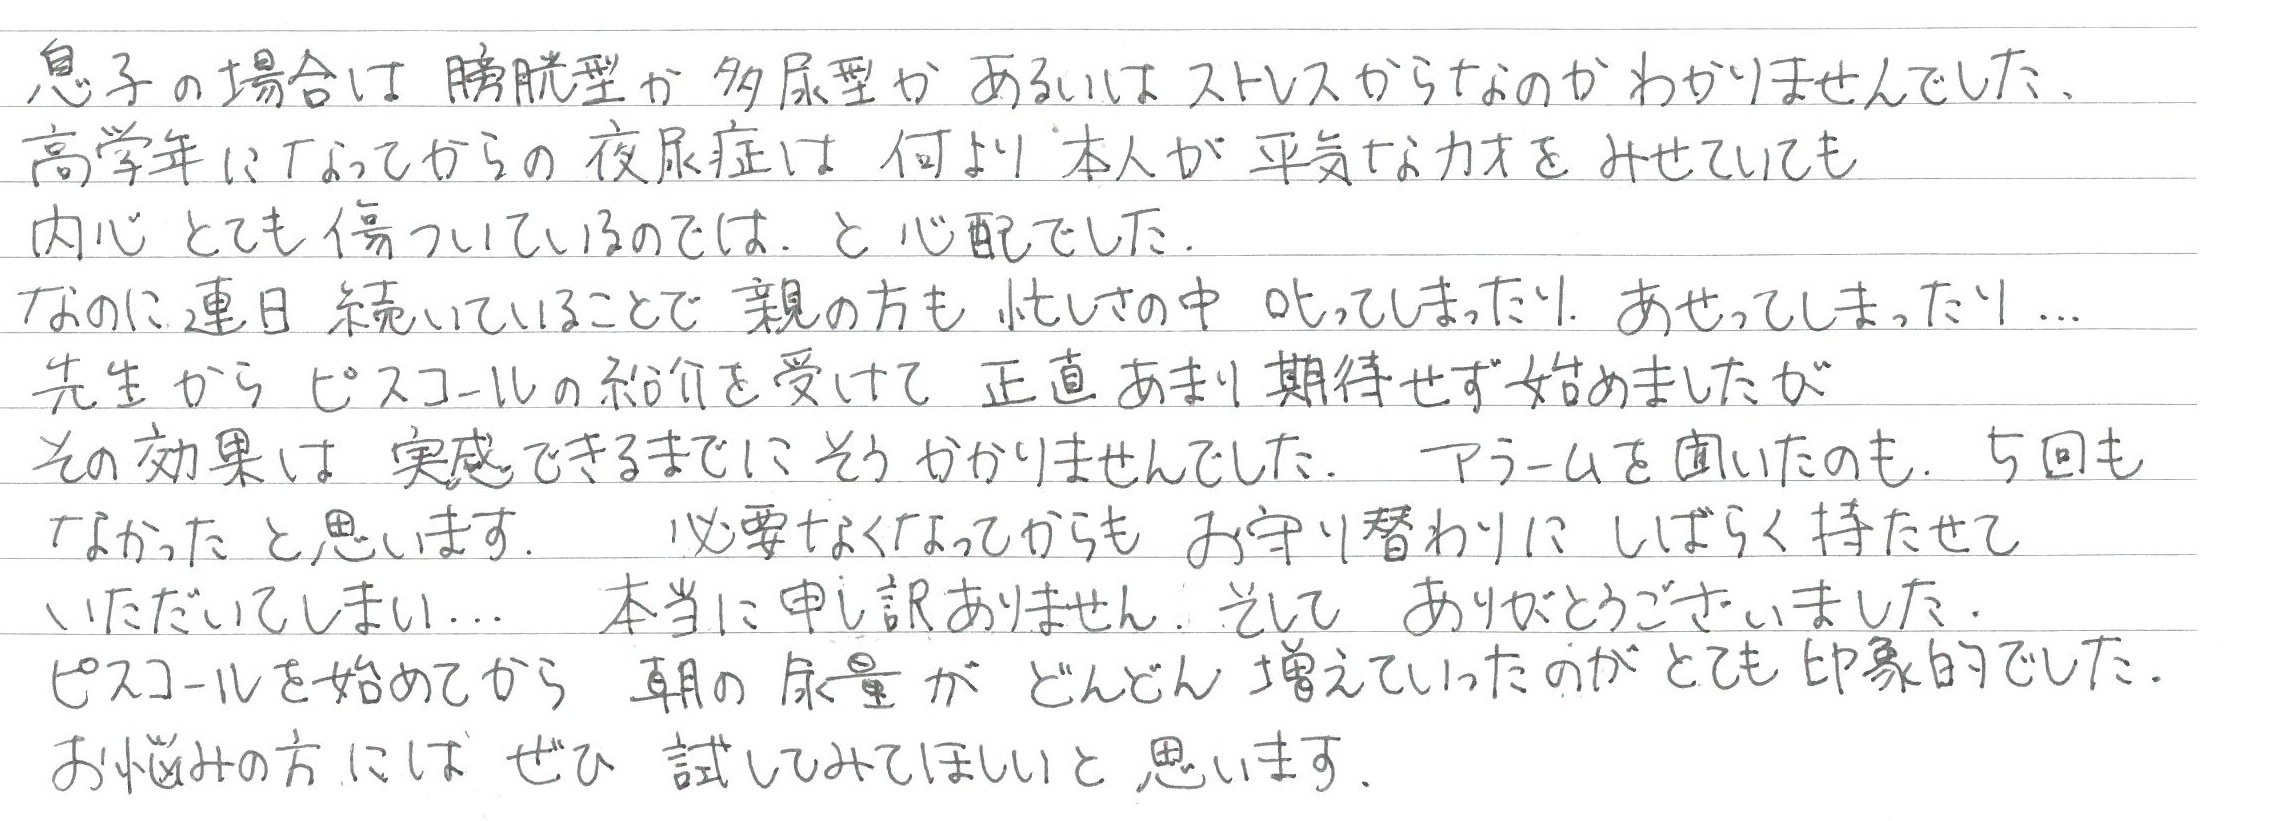 息子の場合は 膀胱型か 多尿型か あるいは ストレスからなのか わかりませんでした、
高学年になってからの 夜尿症は 何より 本人が 平気なカオを みせていても
内心 とても 傷ついているのでは. と 心配でした.
なのに 連日 続いていることで 親の方も 忙しさの中 叱ってしまったり. あせってしまったり…
先生から ピスコールの紹介を受けて 正直 あまり 期待せず 始めましたが
その効果は 実感できるまでに そう かかりませんでした. アラームを聞いたのも. 5回も
なかったと思います. 必要なくなってからも お守り替わりに しばらく持たせて
いただいてしまい… 本当に 申し訳ありません. そして ありがとうございました.
ピスコールを始めてから 朝の 尿量が どんどん 増えていったのが とても 印象的でした.
お悩みの方には ぜひ 試してみてほしいと 思います.